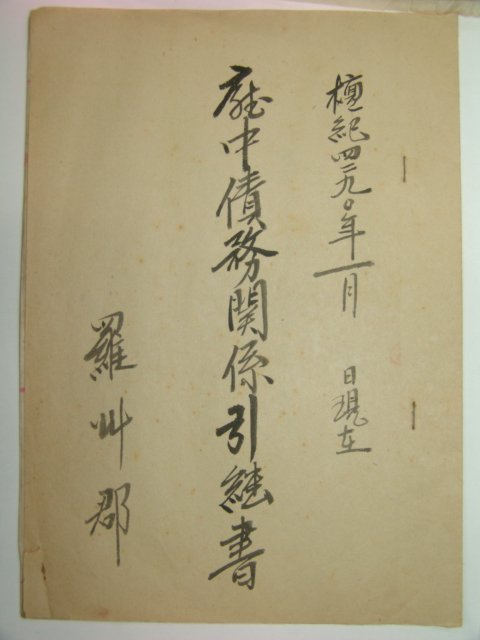 檀紀四二九〇年一月　日現在
廳中債務關係引継書
羅州郡